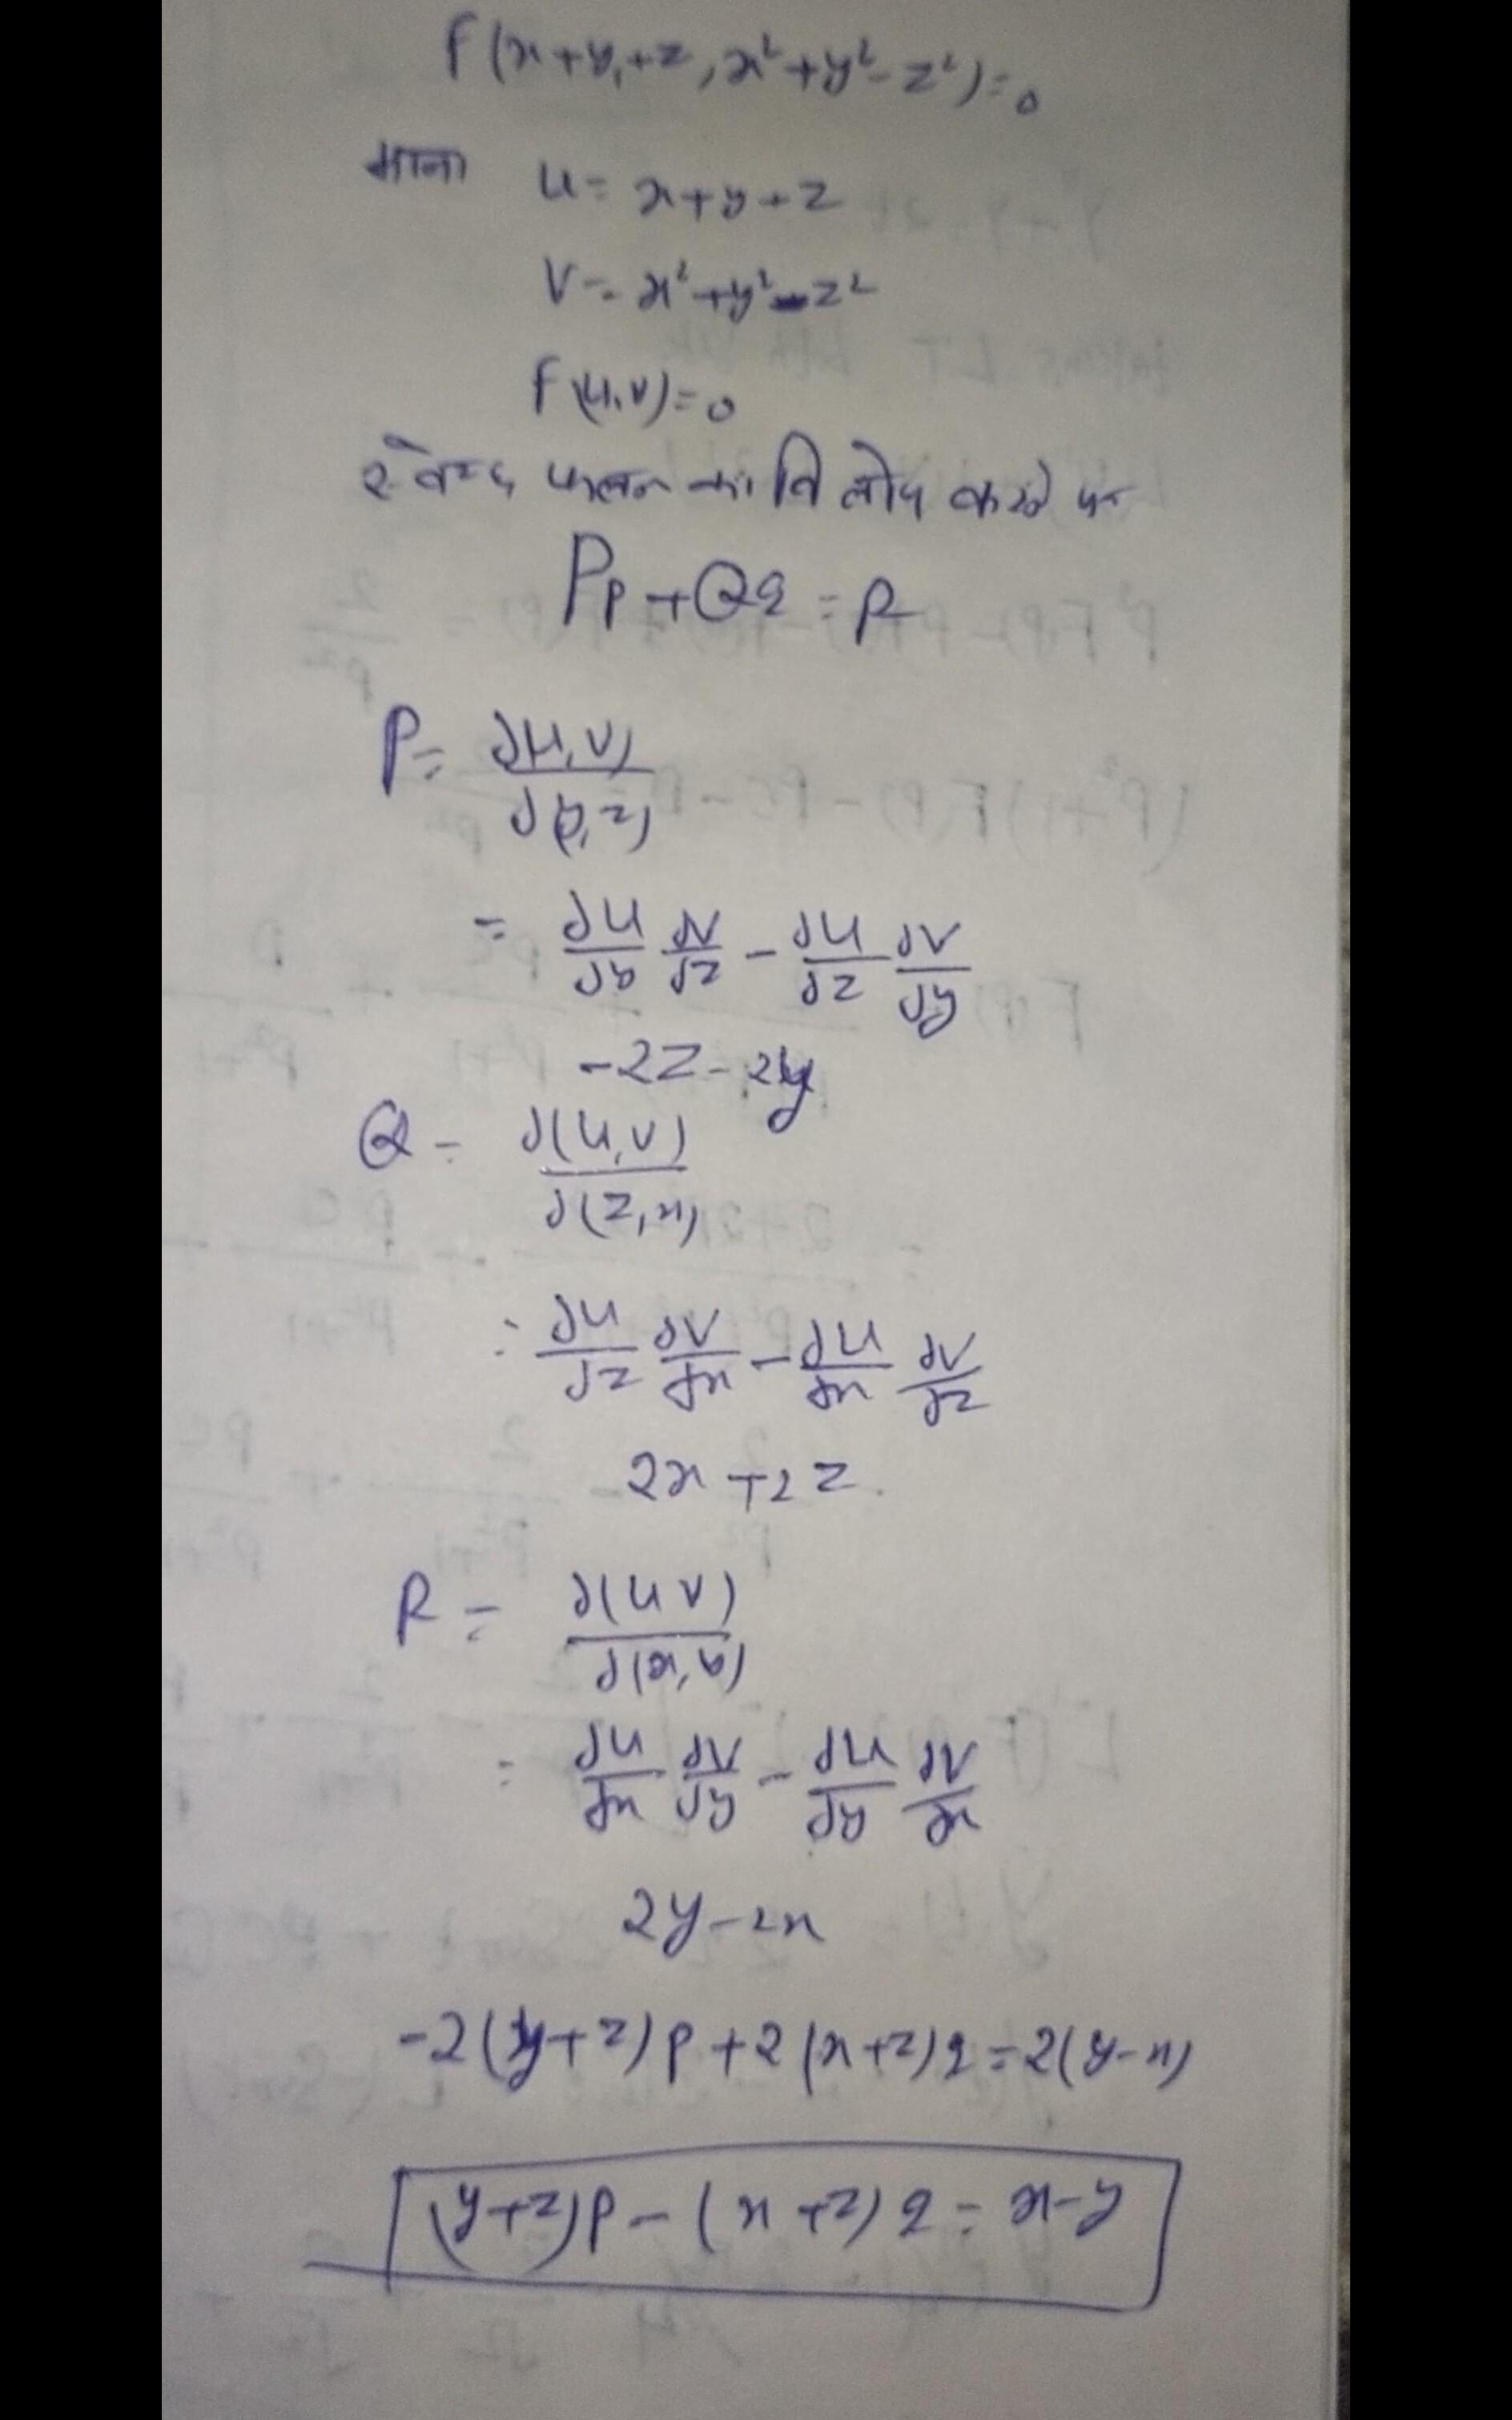 f(x+y+z, x²+y²-z²)=0
माना u= x+y+z
V= x²+y²-z²
f(u,v)=0
स्वेच्छ फलन का विलोप करने पर
Pp+Qq=R
P= ∂(u,v)/∂(y,z)
= ∂u/∂y ∂v/∂z - ∂u/∂z ∂v/∂y
-2z-2y
Q= ∂(u,v)/∂(z,x)
= ∂u/∂z ∂v/∂x - ∂u/∂x ∂v/∂z
2x+2z
R= ∂(u v)/∂(x,y)
= ∂u/∂x ∂v/∂y - ∂u/∂y ∂v/∂x
2y-2x
-2(y+z)p+2(x+z)q=2(y-x)
(y+z)p-(x+z)q=x-y